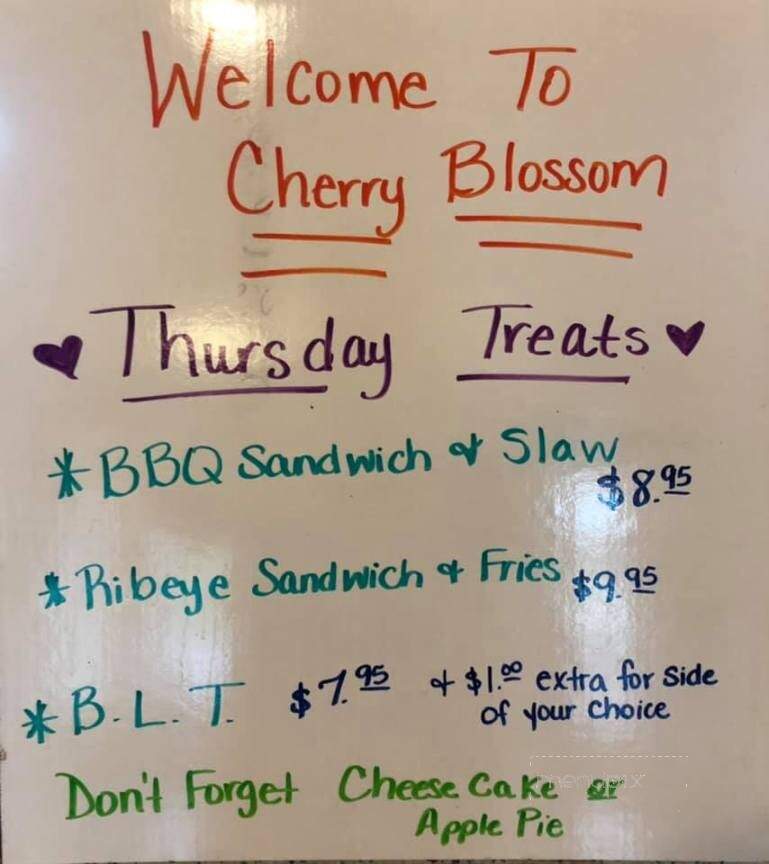 Welcome To
Cherry Blossom
Thursday Treats
* BBQ Sandwich & Slaw
$8.95
* Ribeye Sandwich & Fries $9.95
* B.L.T. $7.95 + $1.00 extra for Side
of your choice
Don't Forget Cheese Cake or
Apple Pie
menupix